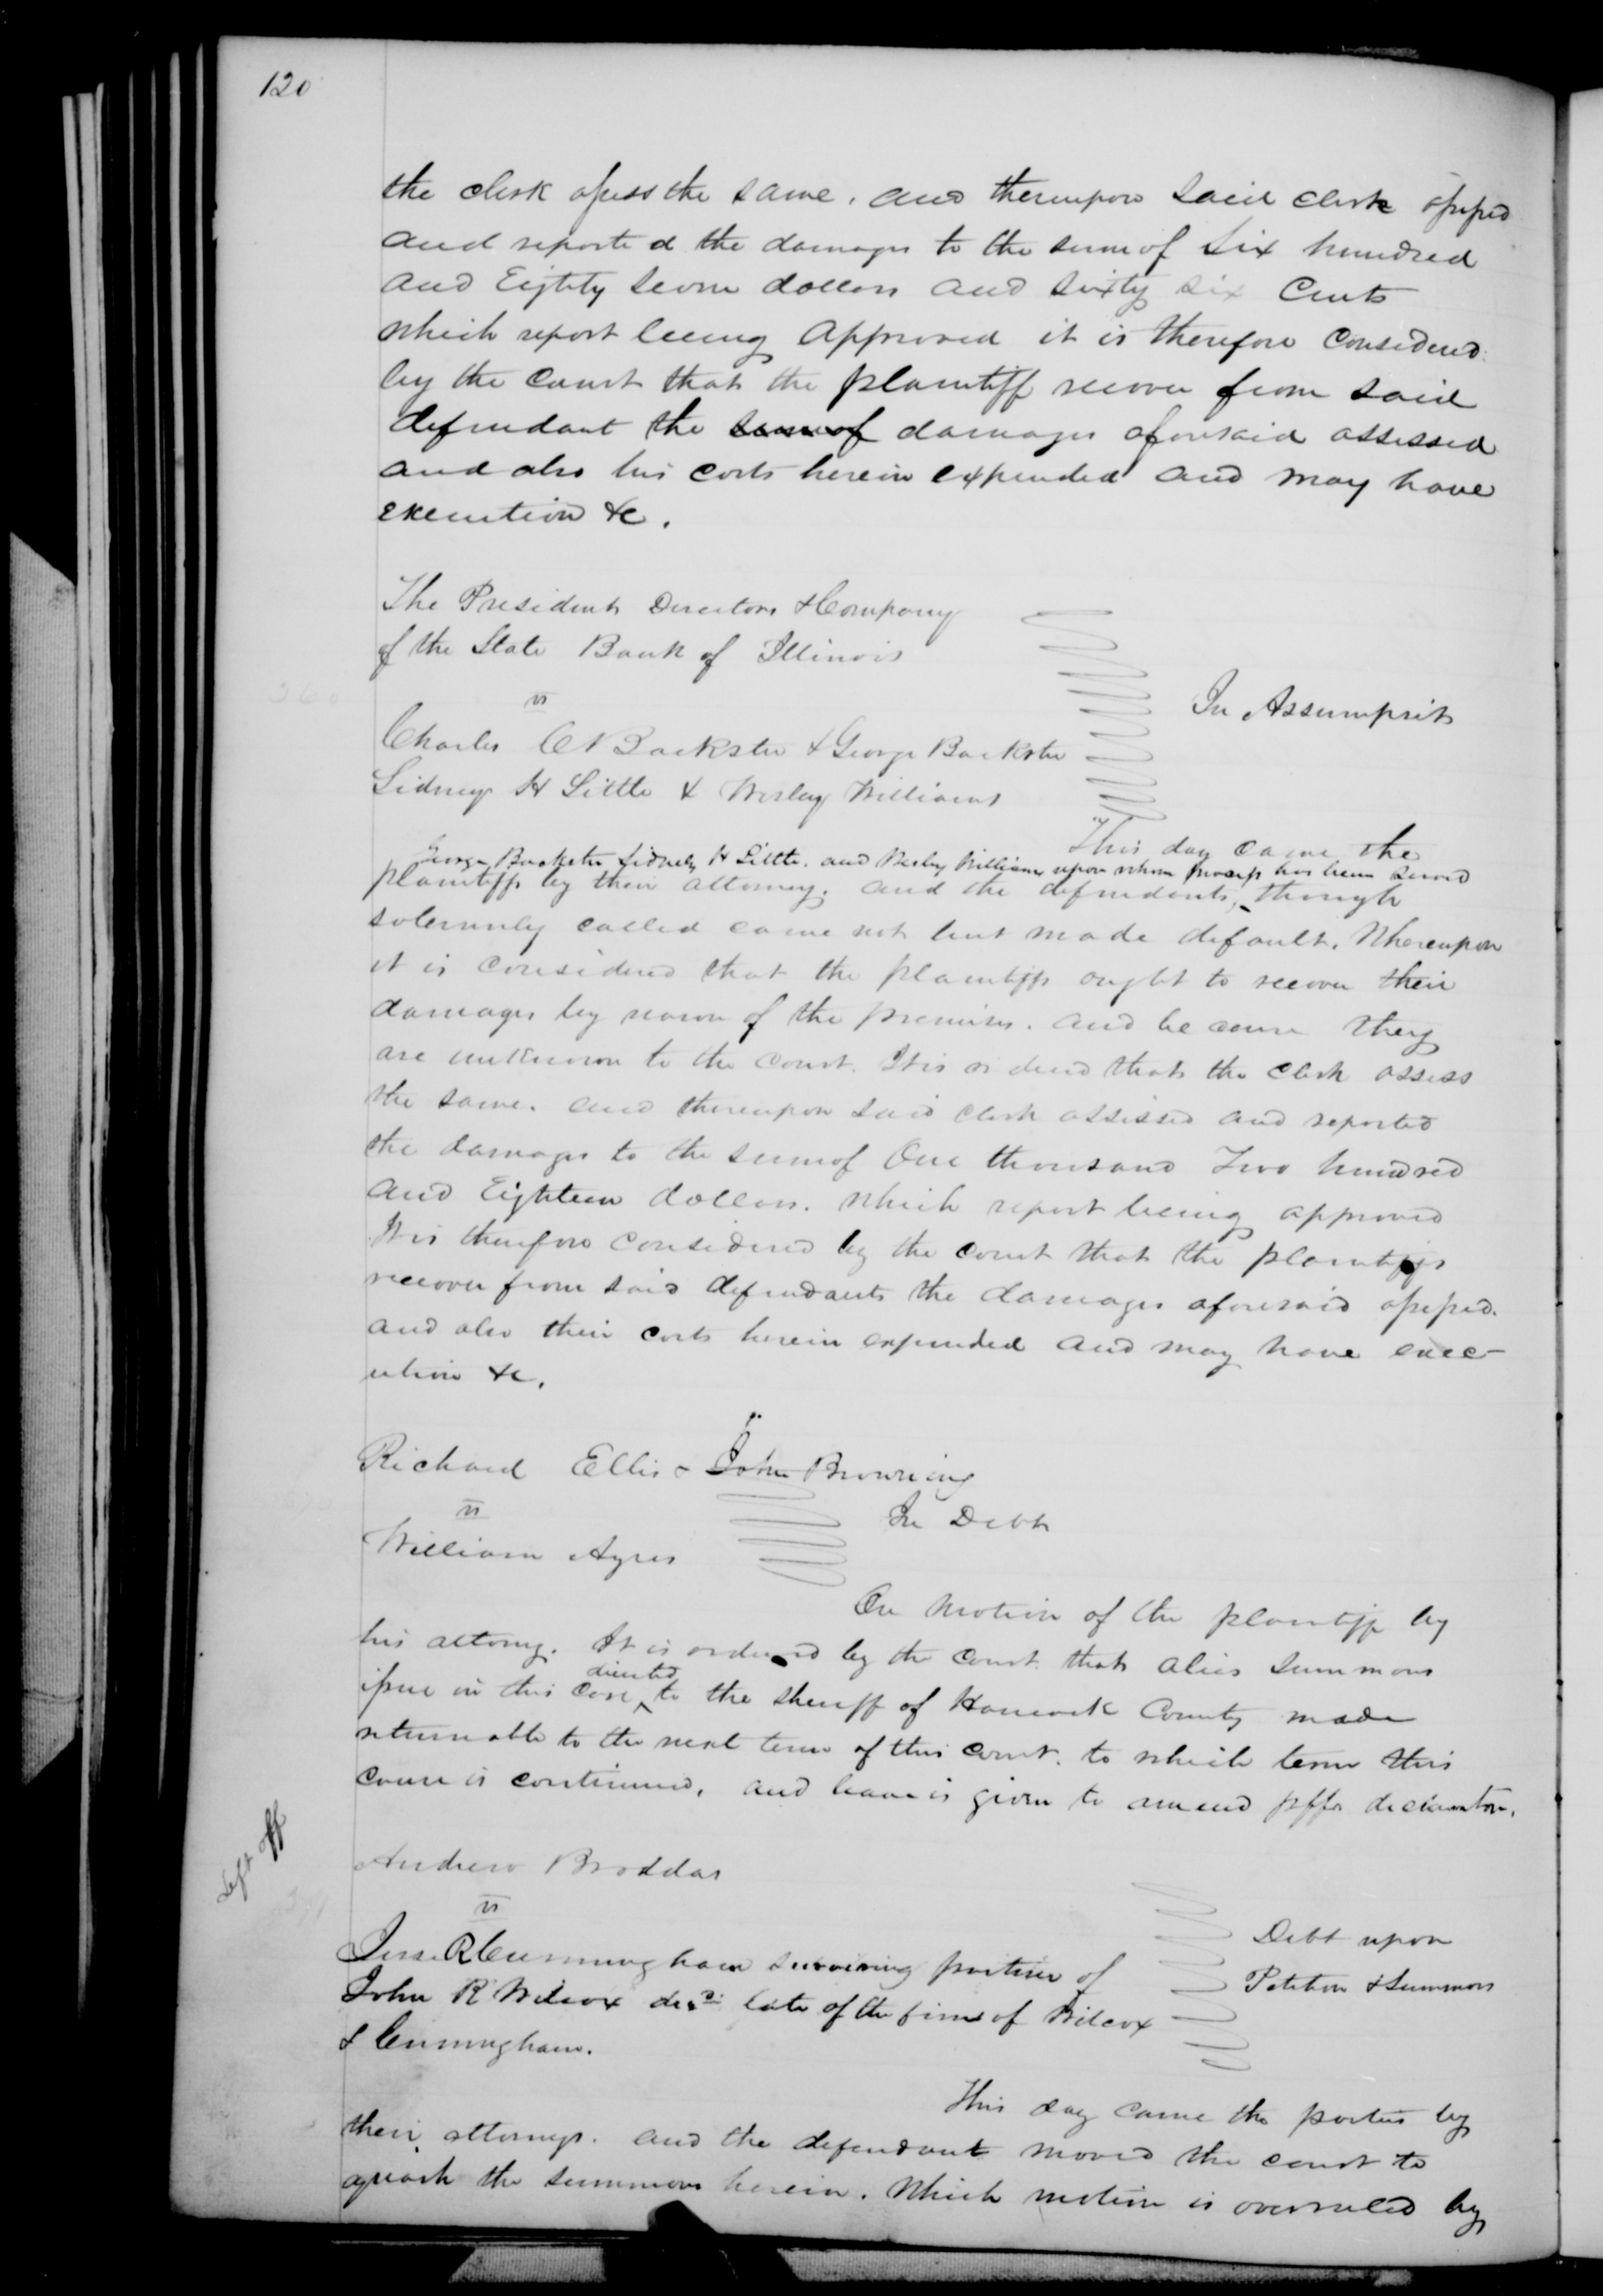 120
the clerk assess the same. and thereupon said clerk assessed
and reported the damages to the sum of Six hundred
and Eighty Seven dollars and Sixty Six Cents
which report being approved it is therefore considered
by the Court that the plaintiff recover from said
defendant the sum of damages aforesaid assessed
and also his costs herein expended and may have
execution &c.
The President Directors & Company
of the State Bank of Illinois
vs
In Assumpsit
Charles C Backster & George Backster
Sidney H Little & Wesley Williams
This day came the
George Backster Sidney H Little. and Wesley Williams upon whom process has been served
plaintiffs by their attorney. and the defendants, though
solemnly called came not but made default. Whereupon
it is considered that the plaintiffs ought to recover their
damages by reason of the premises. and because they
are unknown to the Court. It is ordered that the clerk assess
the same. and thereupon said clerk assessed and reported
the damages to the sum of One thousand Two hundred
and Eighteen dollars. which report being approved
It is therefore considered by the Court that the plaintiffs
recover from said defendants the damages aforesaid assessed.
and also their costs herein expended and may have exec-
ution &c.
Richard Ellis & John Browning
vs
In Debt
William Ayres
On motion of the plaintiff by
his attorney. It is ordered by the Court. that alias Summons
directed
issue in this case to the sheriff of Hancock County made
returnable to the next term of this Court. to which term this
cause is continued. and leave is given to amend plffs declaration.
Left off
Andrew Broddas
vs
Debt upon
Petition & Summons
Jesse R Cunningham surviving partner of
John R Wilcox decd. late of the firm of Wilcox
& Cunningham.
This day came the parties by
their attorneys. and the defendant moved the court to
quash the summons herein. Which motion is overruled by